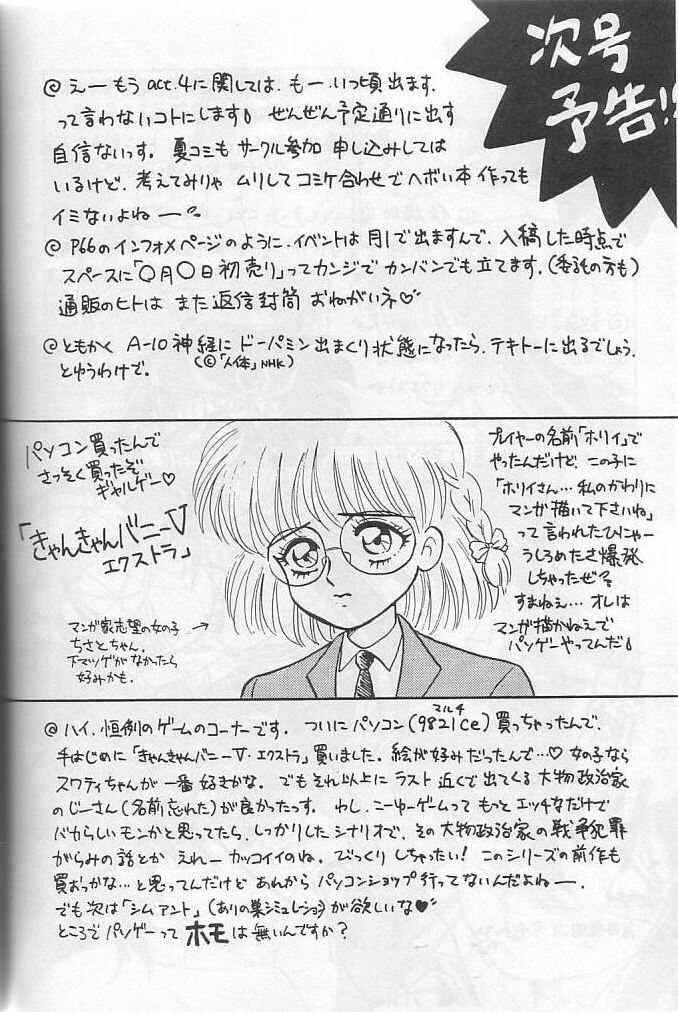 次号
予告!!
@ えー もう act.4に関しては、もー、いつ頃出ます、
って言わないコトにします。ぜんぜん予定通りに出す
自信ないっす。夏コミも サークル参加 申し込みしては
いるけど、考えてみりゃ ムリしてコミケ合わせで ヘボい本 作っても
イミないよねー。
@ P66のインフォメページのように、イベントは 月1で出ますんで、入稿した時点で
スペースに「〇月〇日初売り」ってカンジで カンバンでも立てます。(委託の方も)
通販のヒトは また返信封筒 おねがいネ♡
@ともかく A-10神経に ドーパミン出まくり状態になったら、テキトーに出るでしょう、
(©「人体」NHK)
とゆうわけで。
パソコン買ったんで
さっそく買ったぞ
ギャルゲー♡
「きゃんきゃんバニーV
エクストラ」
マンガ家志望の女の子 →
ちさとちゃん。
下マツゲがなかったら
好みかも。
プレイヤーの名前「ホリイ」で
やったんだけど、この子に
「ホリイさん…私のかわりに
マンガ描いて下さいね」
って言われたひにゃー
うしろめたさ爆発
しちゃったぜ
すまねえ…オレは
マンガ描かねえで
パソゲーやってんだ
@ハイ、恒例のゲームのコーナーです。ついにパソコン(9821Ce)買っちゃったんで、
マルチ
手はじめに「きゃんきゃんバニーV・エクストラ」買いました。絵が好みだったんで…♡ 女の子なら
スワティちゃんが一番 好きかな。でもそれ以上に ラスト 近くで出てくる 大物政治家
のじーさん(名前忘れた)が良かったっす。わし、こーゆーゲームって もっと エッチなだけで
バカらしいモンかと思ってたら、しっかりしたシナリオで、その大物政治家の戦争犯罪
がらみの話とか えれー カッコイイのね。びっくり しちゃったい! このシリーズの前作も
買おっかな…と思ってんだけど あれから パソコンショップ行ってないんだよねー、
でも次は「シムアント」(ありの巣シミュレーション)が欲しいな♥
ところで パソゲーって ホモは無いんですか?